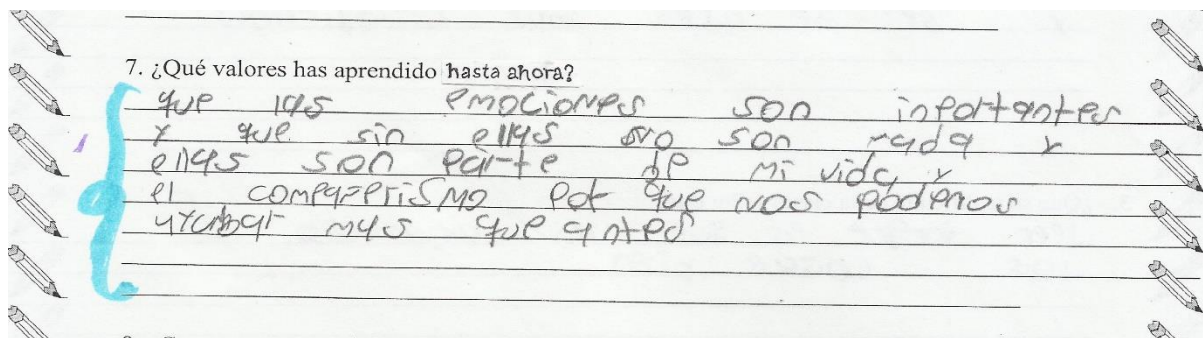 7. ¿Qué valores has aprendido hasta ahora?
que las emociones son inportantes
y que sin ellas no son nada y
ellas son parte de mi vida y
el compañerismo por que nos podemos
ayudar mas que antes